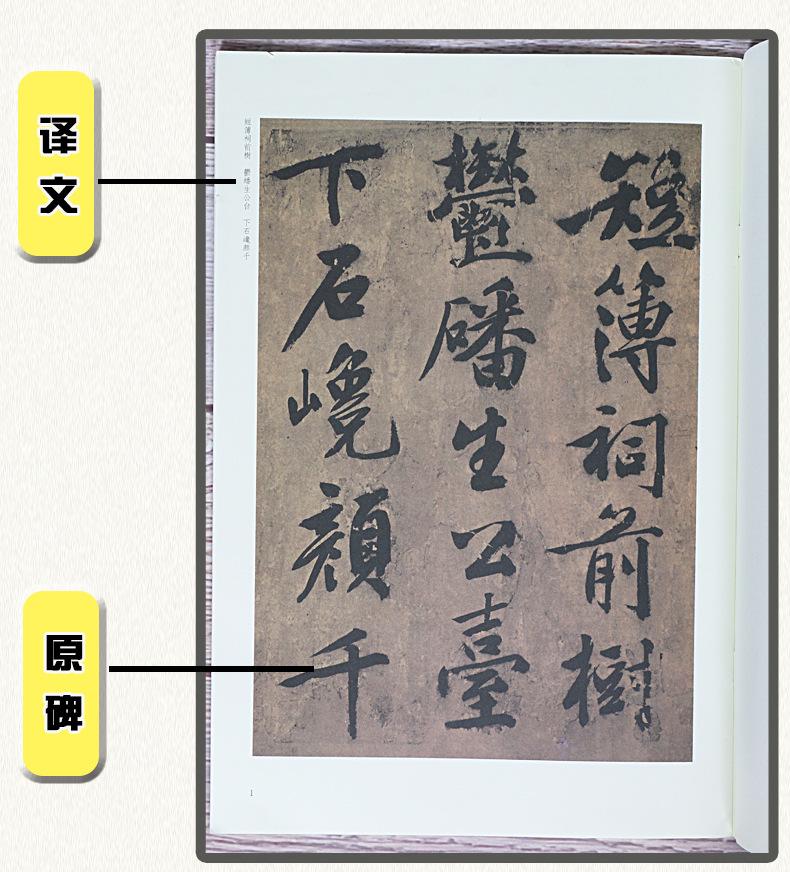 译文
原碑
短簿祠前樹
鬱磻生公臺
下石巉顏千
短簿祠前樹 鬱蟠生公台 下石巉顏千
1